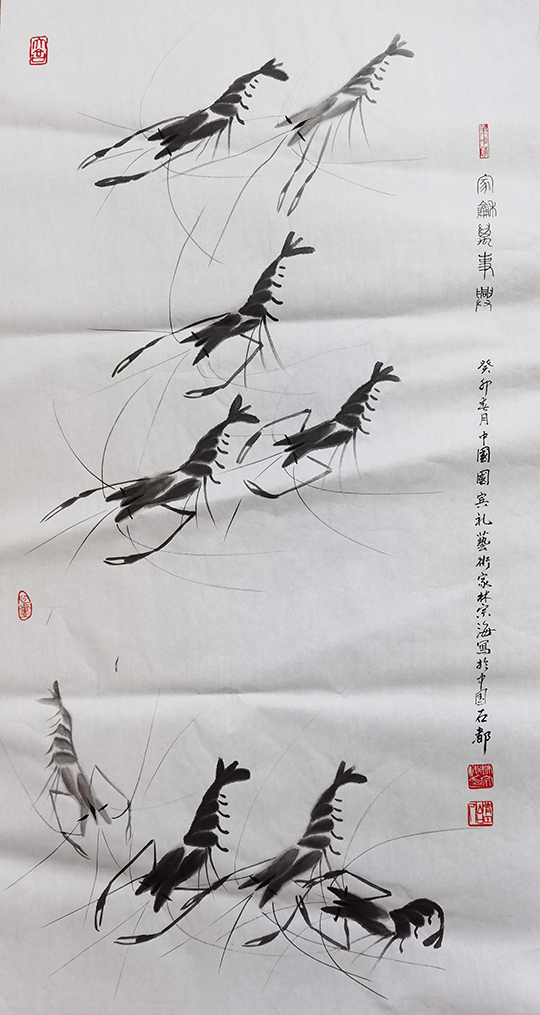 家龢萬事興
癸卯春月中國國宾礼藝術家林宗海寫於中国石都